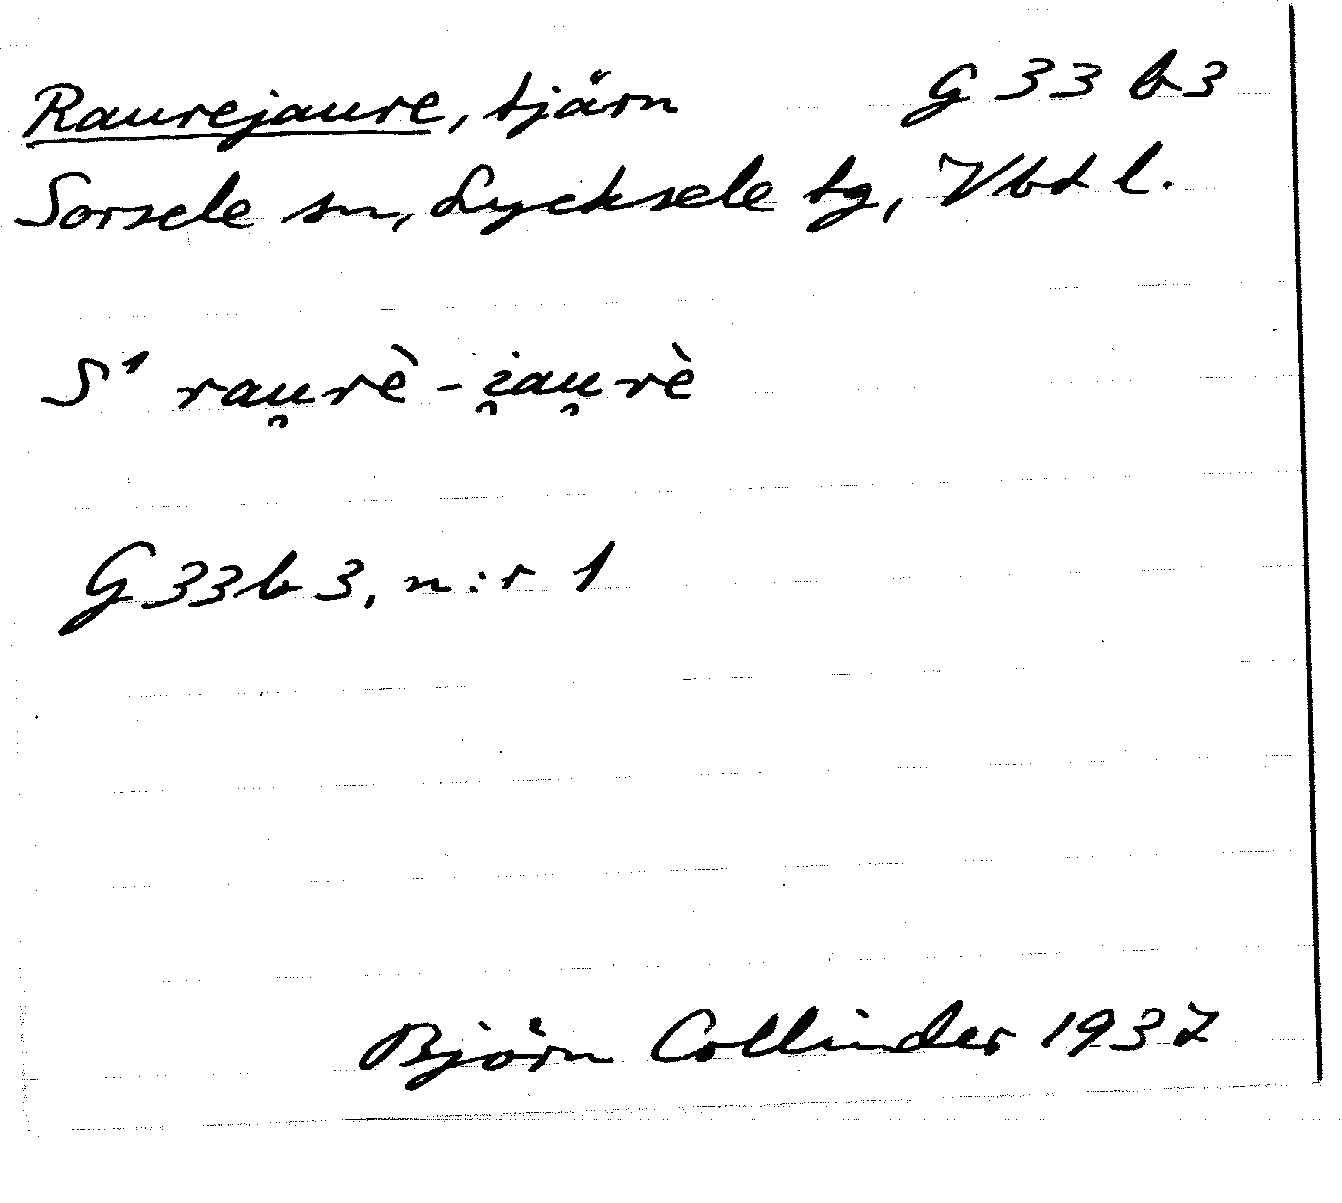 Raurejaure, tjärn G 33 b 3
Sorsele sn, Lycksele tg, Vbd l.
S¹ rau̯rè - i̯au̯rè
G 33 b 3, n:r 1
Björn Collinder 1937